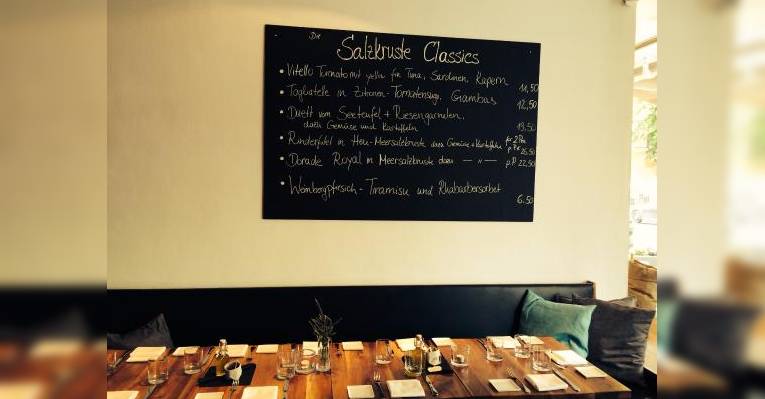 Die
Salzkruste Classics
• Vitello Tonnato mit yellow fin Tuna, Sardinen, Kapern 11,50
• Tagliatelle in Zitronen-Tomatensugo, Gambas 12,50
• Duett vom Seeteufel + Riesengarnelen,
dazu Gemüse und Kartoffeln 19,50
• Rinderfilet in Heu-Meersalzkruste dazu Gemüse + Kartoffeln p.P. 26,50
• Dorade Royal in Meersalzkruste dazu — " — p.P 22,50
• Weinbergpfirsich-Tiramisu und Rhabarbersorbet 6.50